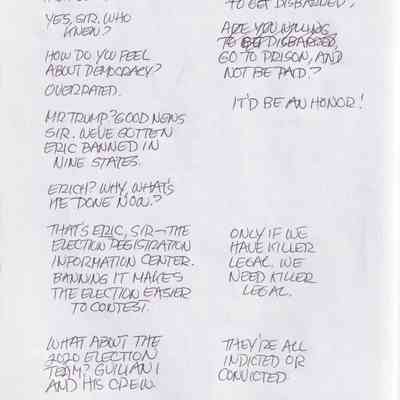 YES, SIR. WHO
KNEW?
HOW DO YOU FEEL
ABOUT DEMOCRACY?
OVERRATED.
MR. TRUMP? GOOD NEWS
SIR. WE'VE GOTTEN
ERIC BANNED IN
NINE STATES.
ERICH? WHY, WHAT'S
HE DONE NOW?
THAT'S ERIC, SIR—THE
ELECTION REGISTRATION
INFORMATION CENTER.
BANNING IT MAKES
THE ELECTION EASIER
TO CONTEST.
WHAT ABOUT THE
2020 ELECTION
TEAM? GUILIANI
AND HIS CREW.
TO GET DISBARRED?
ARE YOU WILLING
TO GET DISBARRED,
GO TO PRISON, AND
NOT BE PAID?
IT'D BE AN HONOR!
ONLY IF WE
HAVE KILLER
LEGAL. WE
NEED KILLER
LEGAL.
THEY'RE ALL
INDICTED OR
CONVICTED